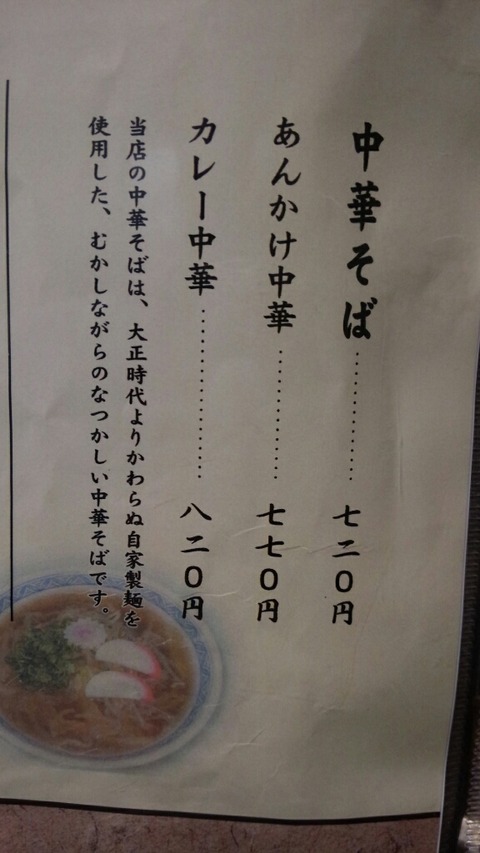 中華そば………………七二０円
あんかけ中華………………七七０円
カレー中華………………八二０円
当店の中華そばは、大正時代よりかわらぬ自家製麺を
使用した、むかしながらのなつかしい中華そばです。